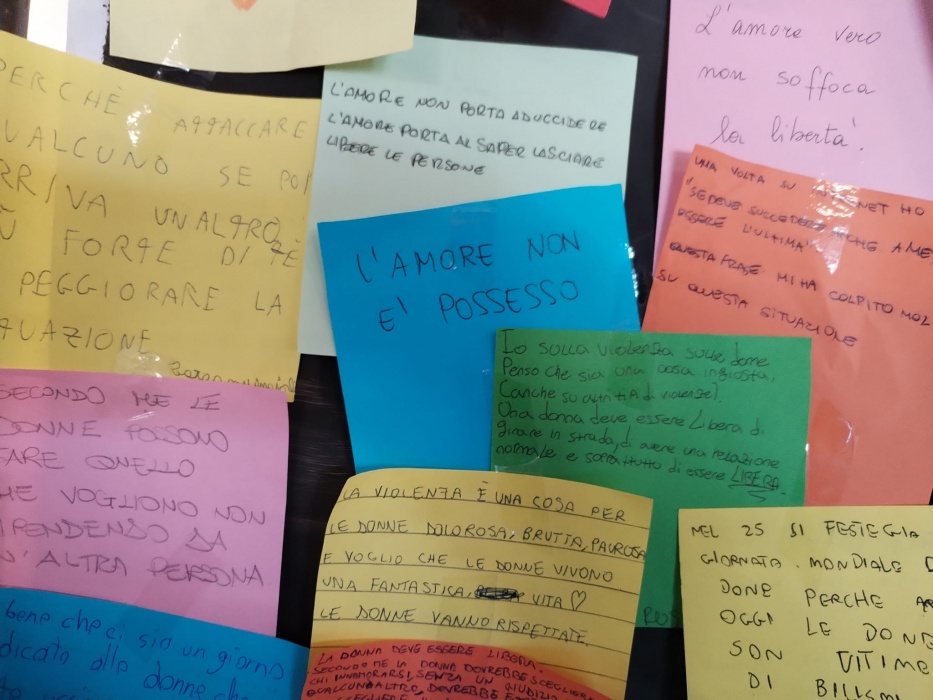 L'amore vero
non soffoca
la libertà.
L'AMORE NON PORTA AD UCCIDERE
L'AMORE PORTA AL SAPER LASCIARE
LIBERE LE PERSONE
PERCHÈ ATTACCARE
QUALCUNO SE POI
ARRIVA UN ALTRO
FORTE DI TE
PEGGIORARE LA
L'AMORE NON
E' POSSESSO
UNA VOLTA SU INTERNET HO
"SE DEVE SUCCEDERE A ME
ESSERE L'ULTIMA"
QUESTA FRASE MI HA COLPITO MOL
SU QUESTA SITUAZIONE
Io sulla violenza sulle done
Penso che sia una cosa ingiusta,
(anche su altri tipi di violenze).
Una donna deve essere Libera di
girare in strada, di avere una relazione
normale e soprattutto di essere LIBERA.
SECONDO ME LE
DONNE POSSONO
FARE QUELLO
CHE VOGLIONO NON
DIPENDENDO DA
UN'ALTRA PERSONA
LA VIOLENZA È UNA COSA PER
LE DONNE DOLOROSA, BRUTTA, PAUROSA
E VOGLIO CHE LE DONNE VIVONO
UNA FANTASTICA VITA ♡
LE DONNE VANNO RISPETTATE.
NEL 25 SI FESTEGIA
GIORNATA MONDIALE D
DONE PERCHE
OGGI LE DONE
SON VITIME
DI
bene che ci sia un giorno
dedicato alle donne che
LA DONNA DEVE ESSERE LIBERA.
SECONDO ME LA DONNA DOVREBBE SCEGLIERE
CHI INNAMORARSI, SENZA UN GIUDIZIO
QUALCUN ALTRO, DOVREBBE